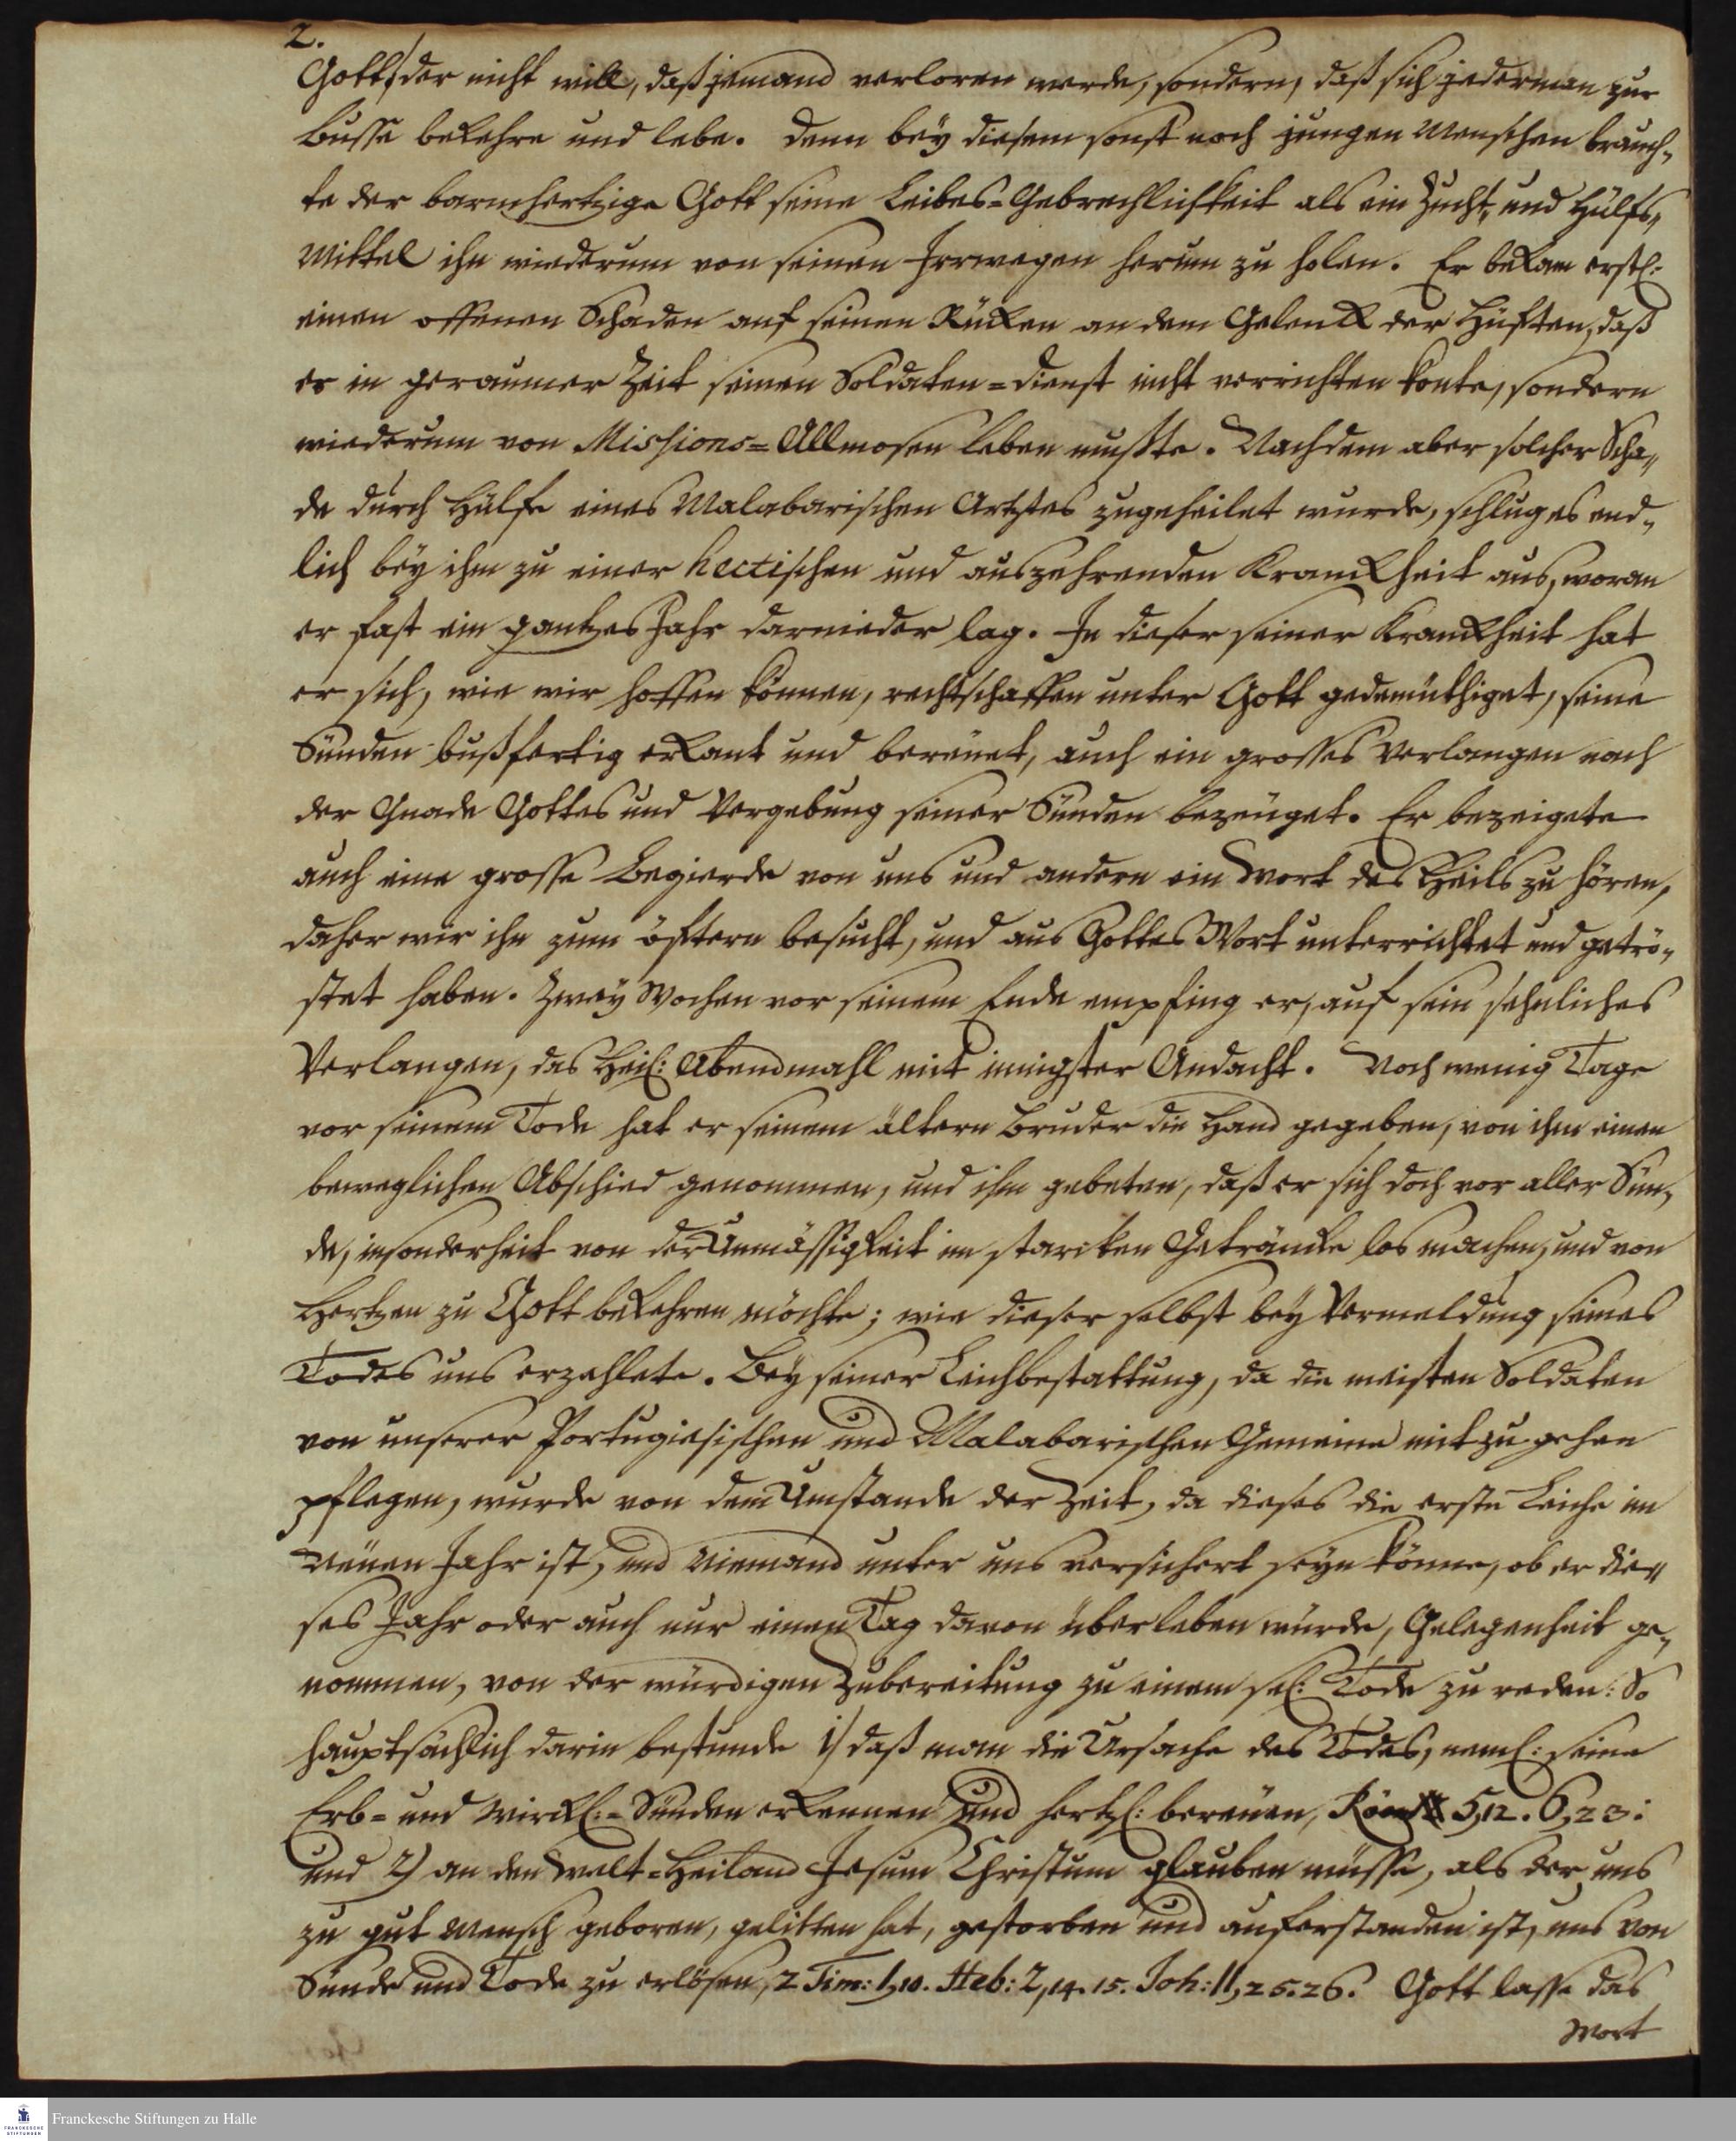 2.
Gott, der nicht will, daß jemand verloren werde, sondern, daß sich jederman zur
Busse bekehre und lebe. Denn bey diesem sonst noch jungen Menschen brauch-
te der barmhertzige Gott seine Leibes-Gebrechlichkeit als ein Zucht- und Hülfs-
Mittel ihn wiederum von seinen Irrwegen herum zu holen. Er bekam erstl:
einen offenen Schaden auf seinen Rücken an dem Gelenck der Hüften, daß
er in geraumer Zeit seinen Soldaten-Dienst nicht verrichten konte, sondern
wiederum von Missions-Allmosen leben mußte. Nachdem aber solcher Scha-
de durch Hülfe eines Malabarischen Artztes zugeheilet wurde, schlug es end-
lich bey ihm zu einer hectischen und auszehrenden Kranckheit aus, woran
er fast ein gantzes Jahr darnieder lag. In dieser seiner Kranckheit hat
er sich, wie wir hoffen können, rechtschaffen unter Gott gedemüthiget, seine
Sünden bußfertig erkant und bereuet, auch ein grosses Verlangen nach
der Gnade Gottes und Vergebung seiner Sünden bezeuget. Er bezeigete
auch eine grosse Begierde von uns und andern ein Wort des Heils zu hören,
daher wir ihn zum öftern besucht, und aus Gottes Wort unterrichtet und getrö-
stet haben. Zwey Wochen vor seinem Ende empfing er, auf sein sehnliches
Verlangen, das Heil: Abendmahl mit innigster Andacht. Noch wenig Tage
vor seinem Tode hat er seinem ältern Bruder die Hand gegeben, von ihm einen
beweglichen Abschied genommen, und ihn gebeten, daß er sich doch vor aller Sün-
de, insonderheit von der Unmässigkeit im starcken Geträncke los machen, und von
Hertzen zu Gott bekehren möchte; wie dieser selbst bey Vermeldung seines
Todes uns erzehlete. Bey seiner Leichbestattung, da die meisten Soldaten
von unserer Portugiesischen und Malabarischen Gemeine mit zu gehen
pflegen, wurde von dem Umstande der Zeit, da dieses die erste Leiche im
Neuen Jahr ist, und Niemand unter uns versichert seyn könne, ob er die-
ses Jahr oder auch nur einen Tag davon überleben würde, Gelegenheit ge-
nommen, von der würdigen Zubereitung zu einem sel: Tode zu reden: So
hauptsächlich darin bestunde 1) daß man die Ursache des Todes, neml: seine
Erb- und Wirckl:-Sünden erkennen und hertzl: bereuen, Röm 5,12. 6,23:
und 2) an den Welt-Heiland Jesum Christum glauben müsse, als der uns
zu gut Mensch geboren, gelitten hat, gestorben und auferstanden ist, uns von
Sünde und Tode zu erlösen, 2 Tim: 1,10. Heb: 2,14.15. Joh: 11,25.26. Gott lasse das
Wort
Franckesche Stiftungen zu Halle
FRANCKESCHE
STIFTUNGEN